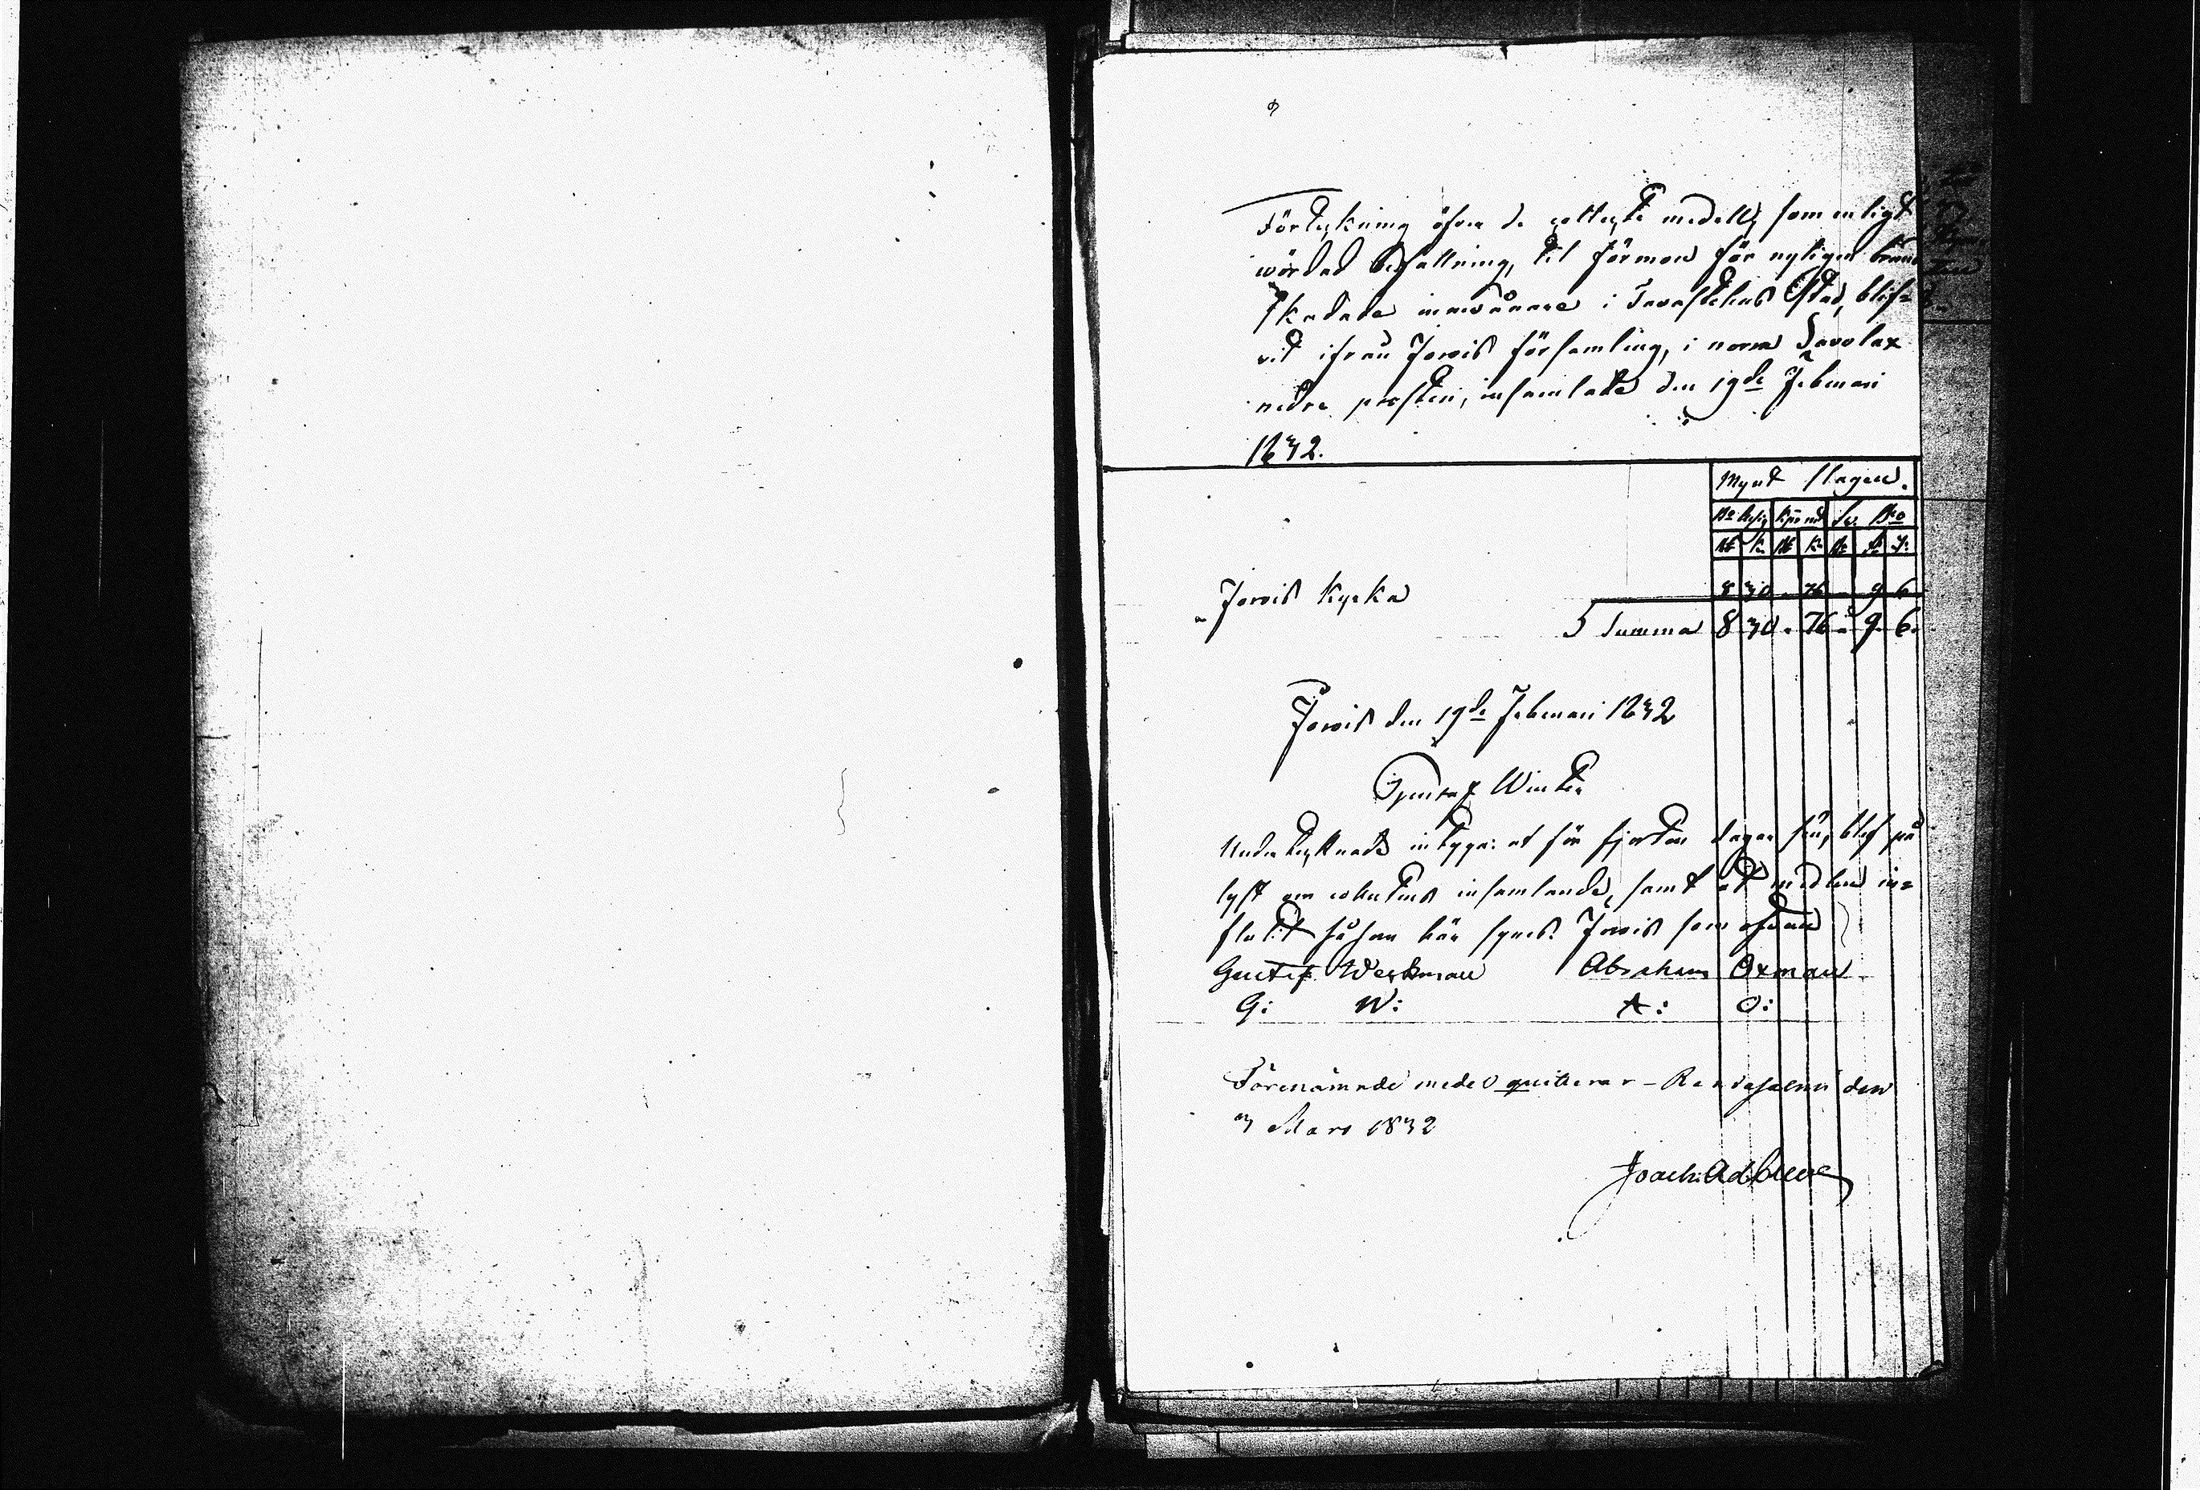 Förtekning öfver de collecte medell, som enligt
wördad befallning, til förmon för nyligen brand
skadade innevånare i Tavastehus Stad, blif=
vit ifrån Jorois församling, i norra Savolax
nedre prosteri, insamlade den 19de Februari
1832.
Mynt slagen.
Bco Assig Kop: mt Sv. Bco
R k R k R s r
Jorois Kyrka 8 30 „ 76 „ 9 6
Summa 8 30 „ 76 „ 9 6.
Jorois den 19de Februari 1832
Gustaf Winter
Undertecknade intyga: at för fjorton dagar sen, blef på
lyst om collectens insamlande, samt at medlen in=
flutit såsom här synes. Jorois som ofvan
Gustaf Werkman Abraham Oxman
G: W: A: O:
Förenämnde medel quitterar – Randasalmi den
3 Mars 1832
Joach: Ad: